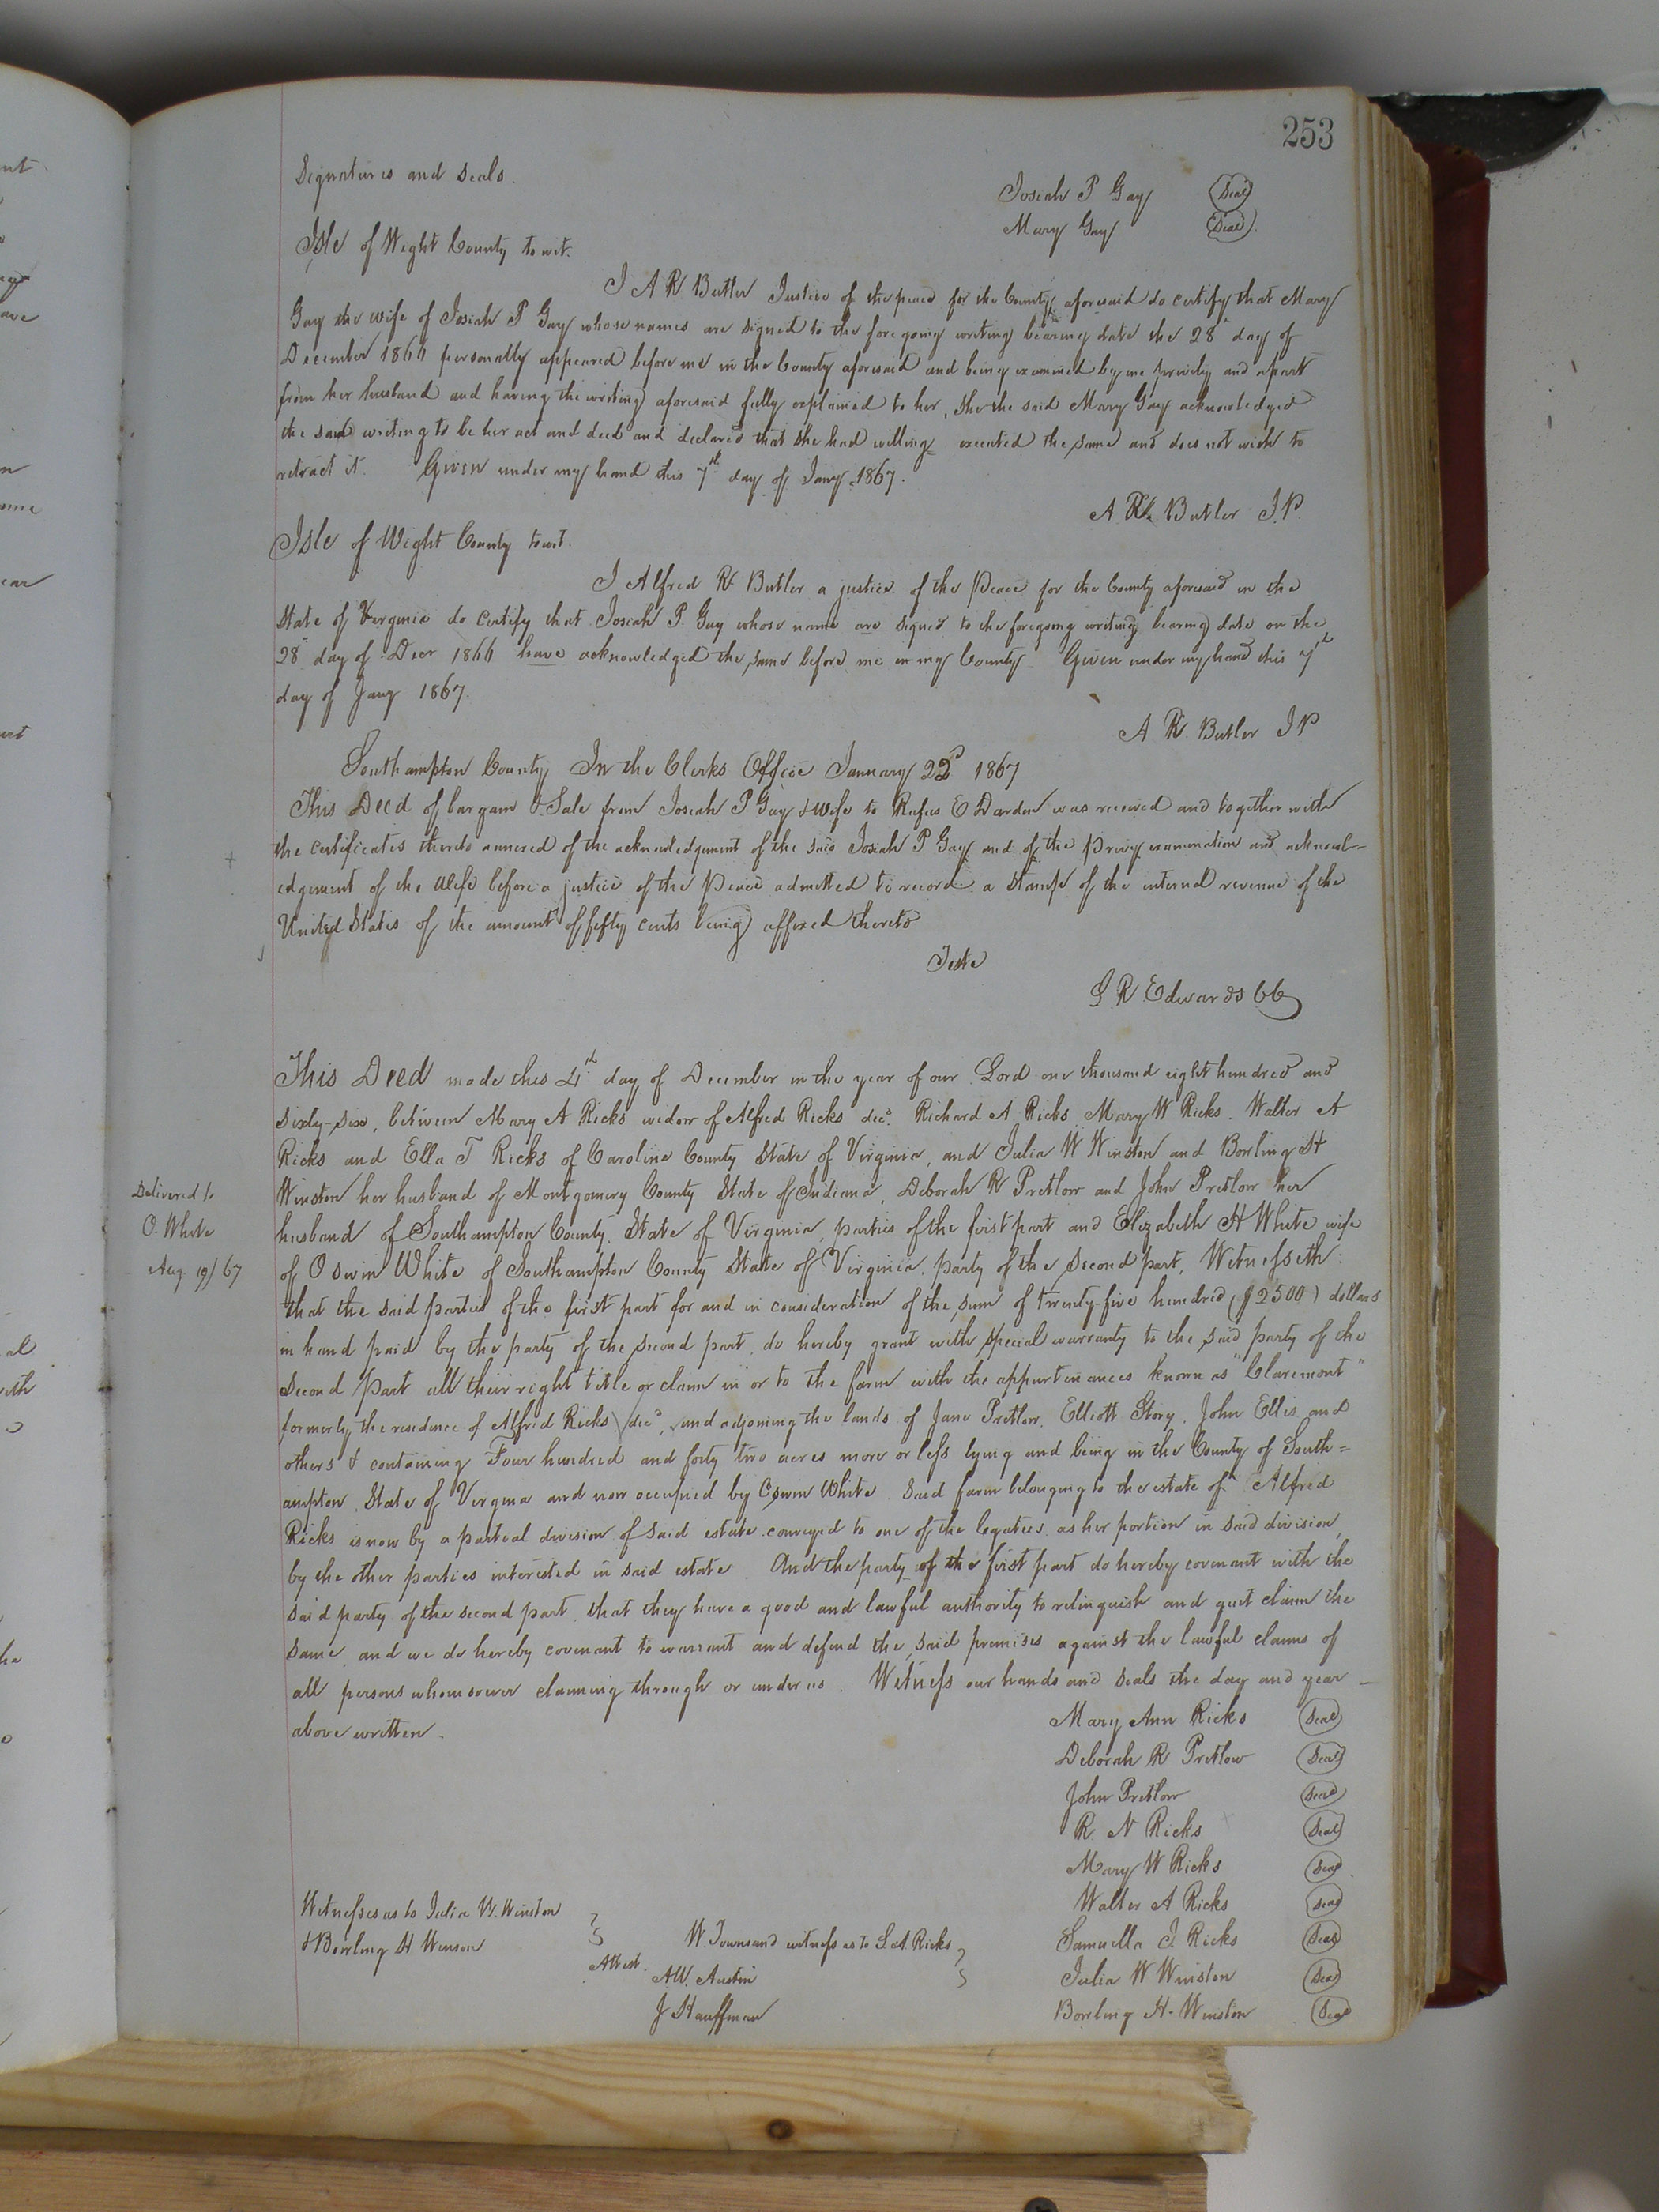 253
Signatures and seals.
Josiah P Gay Seal
Mary Gay Seal
Isle of Wight County to wit.
I A R Butler Justice of the peace for the County aforesaid do certify that Mary
Gay the wife of Josiah P Gay whose names are signed to the foregoing writing bearing date the 28th day of
December 1866 personally appeared before me in the County aforesaid and being examined by me privily and apart
from her husband and having the writing aforesaid fully explained to her, she the said Mary Gay acknowledged
the said writing to be her act and deed and declared that she had willing executed the same and does not wish to
retract it. Given under my hand this 7th day of Jany 1867.
A. R. Butler J.P.
Isle of Wight County towit.
I Alfred R Butler a justice of the Peace for the County aforesaid in the
State of Virginia do certify that Josiah P. Gay whose name are signed to the foregoing writing bearing date on the
28 day of Decr 1866 have acknowledged the same before me in my County Given under my hand this 7th
day of Jany 1867.
A R. Butler JP
Southampton County In the Clerks Office January 22d 1867
This Deed of bargain & Sale from Josiah P Gay & Wife to Rufus E Darden was received and together with
the certificates thereto annexed of the acknowledgement of the said Josiah P Gay and of the Privy examination and acknowl-
edgement of the Wife before a justice of the Peace admitted to record a Stamp of the internal revenue of the
United States of the amount of fifty cents being affixed thereto
Teste
L R Edwards CC
This Deed made this 4th day of December in the year of our Lord one thousand eight hundred and
Sixty-six, between Mary A Ricks widow of Alfred Ricks decd. Richard A Ricks, Mary W Ricks, Walter A
Ricks and Ella T Ricks of Caroline County State of Virginia, and Julia W Winston and Bowling H
Winston her husband of Montgomery County State of Indiana, Deborah R Pretlow and John Pretlow her
husband of Southampton County, State of Virginia, parties of the first part and Elizabeth H White wife
of Oswin White of Southampton County State of Virginia, party of the second part, Witnesseth:
that the said parties of the first part for and in consideration of the sum of twenty-five hundred ($2500) dollars
in hand paid by the party of the second part, do hereby grant with special warranty to the said party of the
second Part all their right title or claim in or to the farm with the appurtinances known as "Claremont"
formerly the residence of Alfred Ricks decd, and adjoining the lands of Jane Pretlow, Elliott Story, John Ellis and
others & containing Four hundred and forty two acres more or less lying and being in the County of South=
ampton State of Virgina and now occupied by Oswin White. Said farm belonging to the estate of Alfred
Ricks is now by a partial division of said estate conveyed to one of the legatees, as her portion in said division,
by the other parties interested in said estate. And the party of the first part do hereby covenant with the
said party of the second part, that they have a good and lawful authority to relinquish and quit claim the
same, and we do hereby covenant to warrant and defend the said premises against the lawful claims of
all persons whomsoever claiming through or under us. Witness our hands and seals the day and year
above written.
Delivered to
O. White
Aug. 19/67
Mary Ann Ricks Seal
Deborah R Pretlow Seal
John Pretlow Seal
R. N Ricks Seal
Mary W Ricks Seal
Walter A Ricks Seal
Samuella J. Ricks Seal
Julia W Winston Seal
Bowling H. Winston Seal
Witnesses as to Julia W. Winston
& Bowling H Winson
Attest.
W. Townsand witness as to S. A. Ricks
AW. Austin
J Hauffman